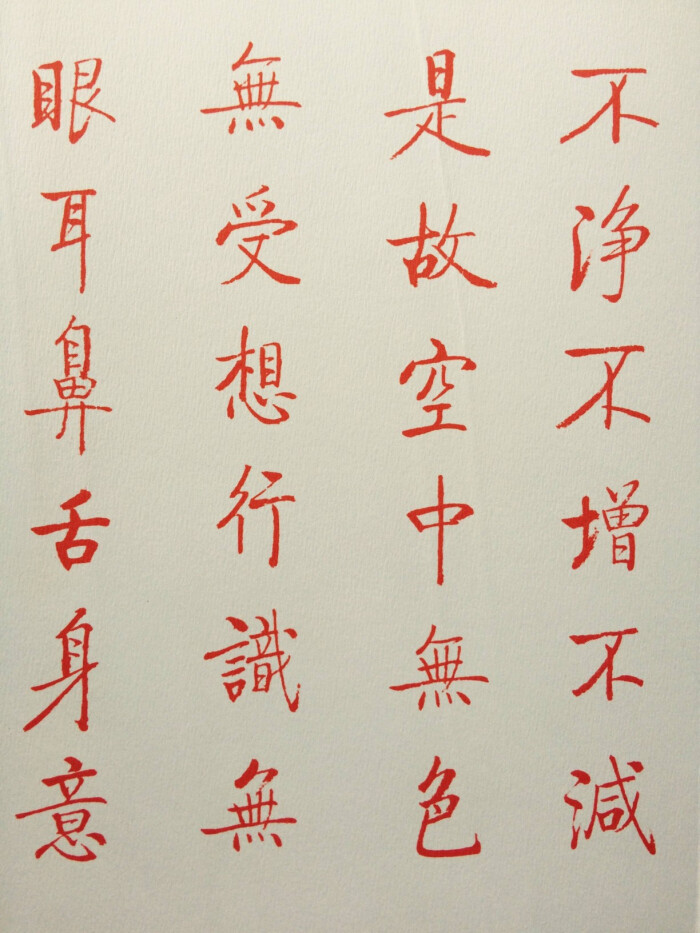 不浄不増不減
是故空中無色
無受想行識無
眼耳鼻舌身意